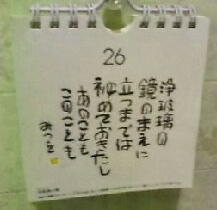 26
浄玻璃の
鏡のまえに
立つまでは
秘めておきたし
あのことも
このことも
みつを